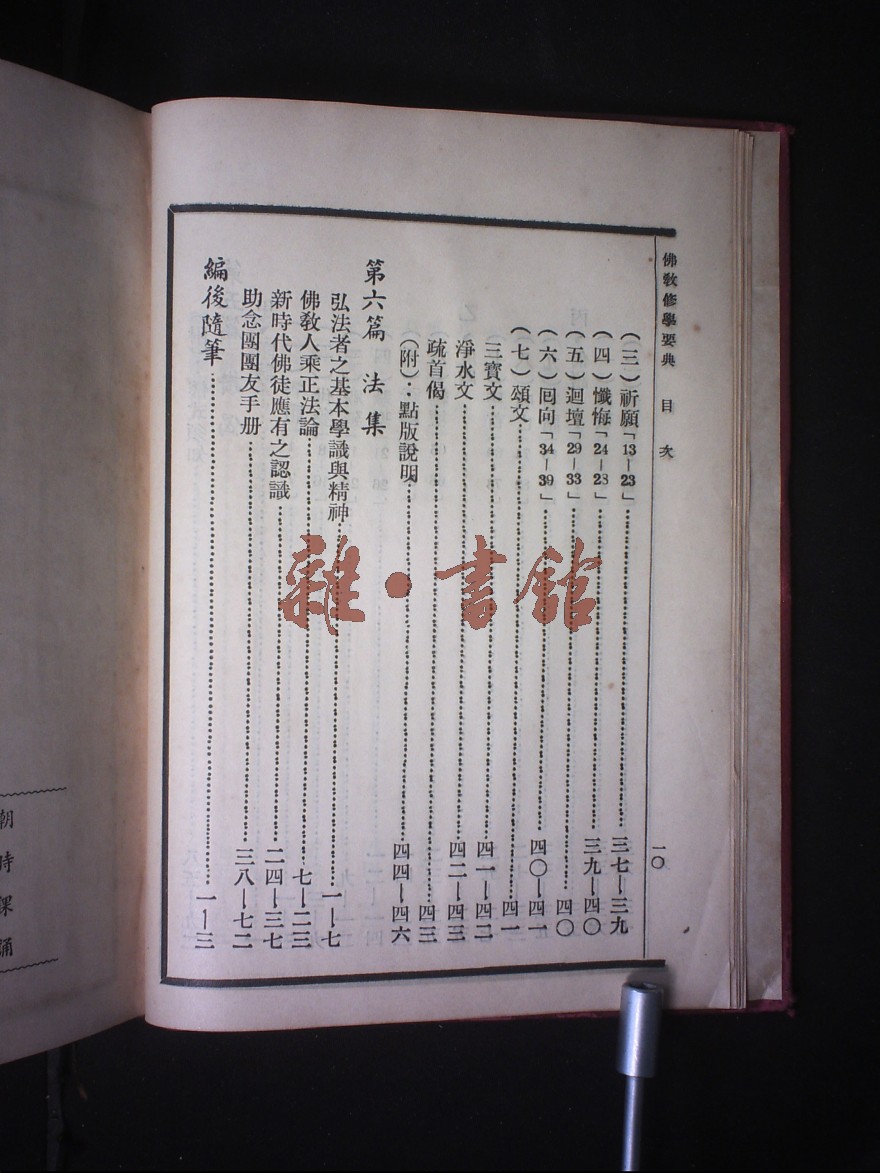 佛教修學要典　目次　一〇
（三）祈願「13－23」……三七－三九
（四）懺悔「24－28」……三九－四〇
（五）迴壇「29－33」……四〇
（六）回向「34－39」……四〇－四一
（七）頌文……四一
三寶文……四一－四二
淨水文……四二－四三
疏首偈……四三
（附）：點版說明……四四－四六
第六篇　法集
弘法者之基本學識與精神……一－七
佛教人乘正法論……七－二三
新時代佛徒應有之認識……二四－三七
助念團團友手册……三八－七二
編後隨筆……一－三
朝時課誦
雜・書館